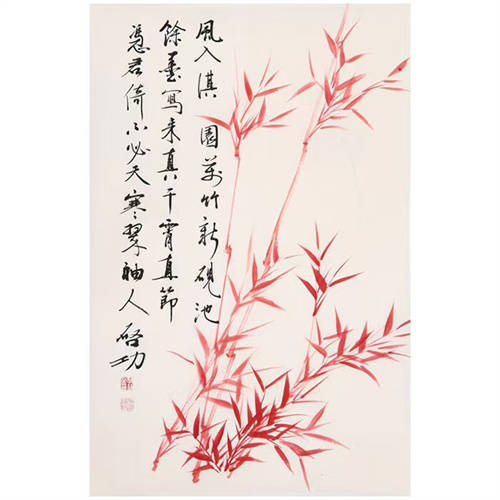 風入淇園萬竹新硯池
餘墨寫來真干霄直節
憑君倚不必天寒翠袖人
啓功